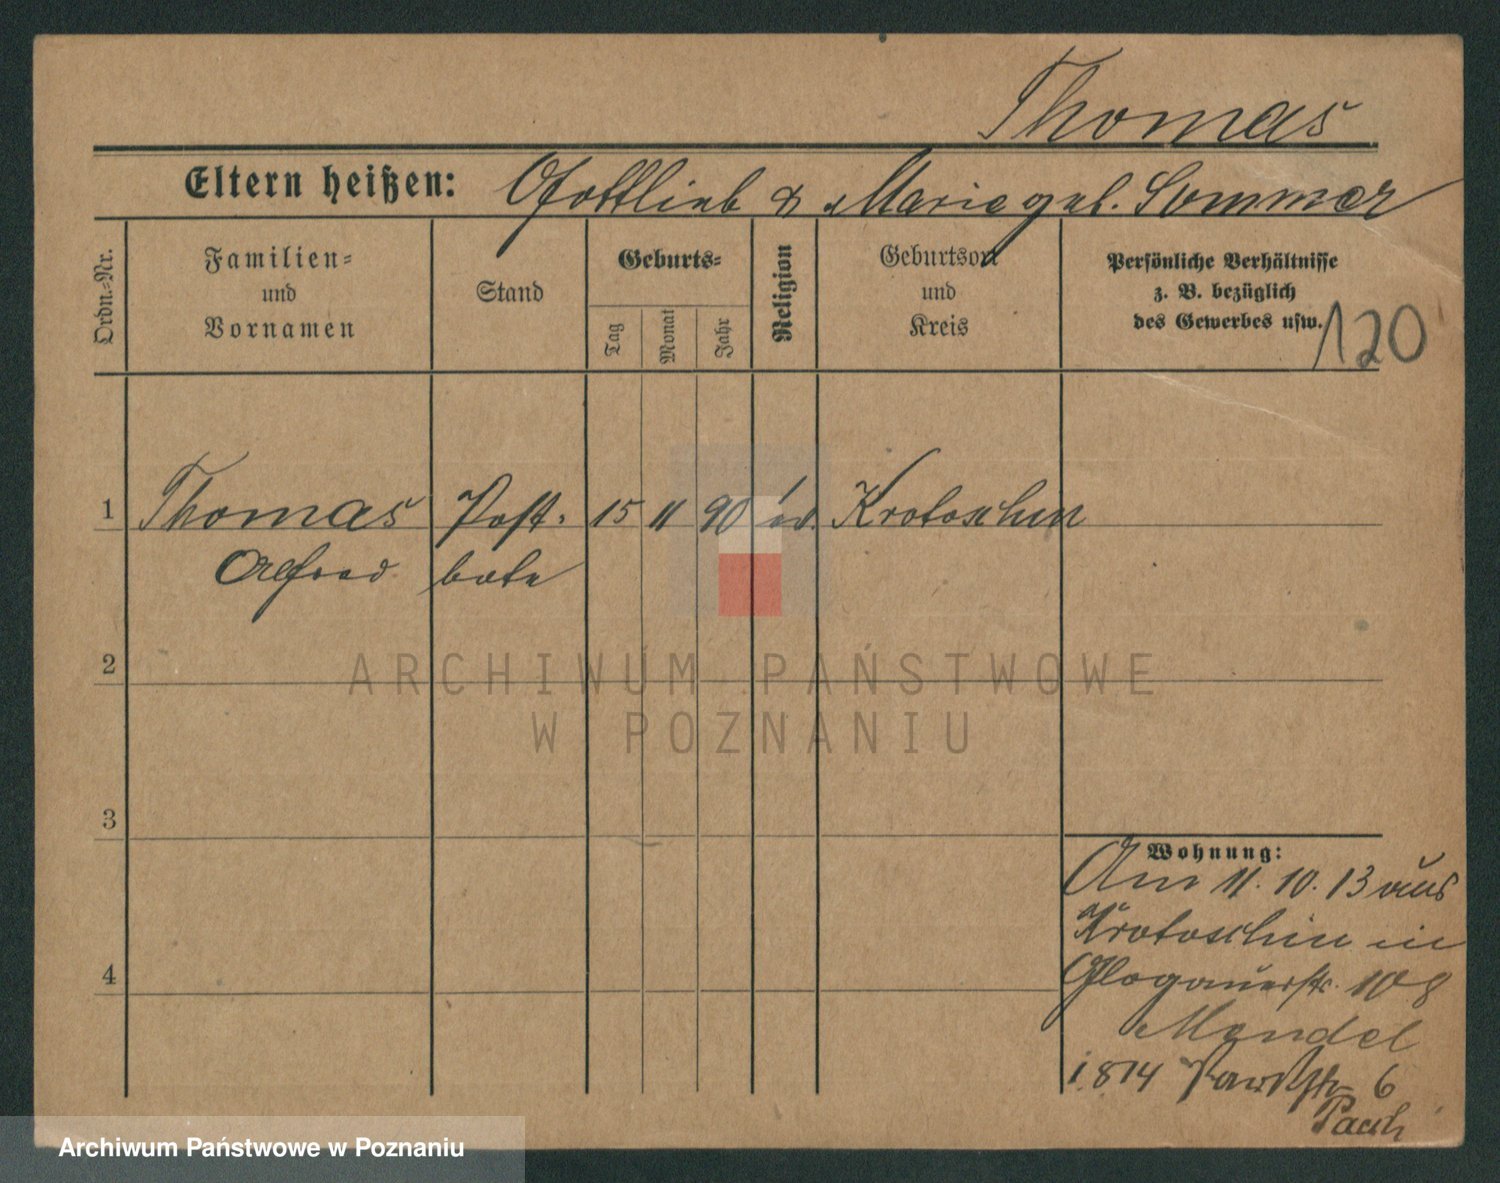 Thomas
Eltern heißen: Gottlieb & Marie geb. Sommer
Ordn.=Nr.
Familien=
und
Vornamen
Stand
Geburts=
Tag
Monat
Jahr
Religion
Geburtsort
und
Kreis
Persönliche Verhältnisse
z. B. bezüglich
des Gewerbes usw.
120
1 Thomas Post- 15 11 90 ev. Krotoschin
Alfred bote
2
ARCHIWUM PAŃSTWOWE
W POZNANIU
3
Wohnung:
Am 11. 10. 13 aus
Krotoschin in
Glogauerstr. 108
4
Mendel
1.814 Parkstr 6
Archiwum Państwowe w Poznaniu